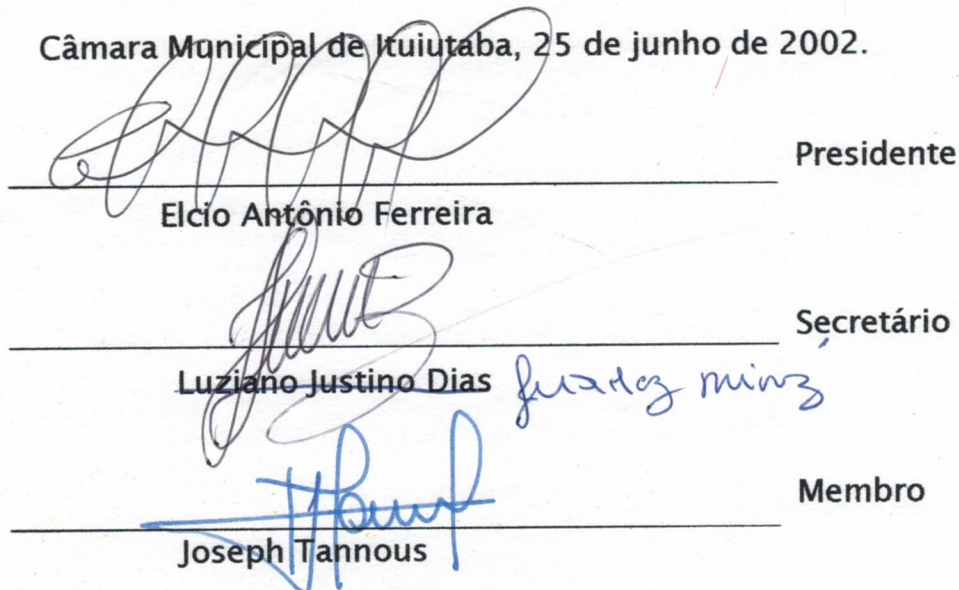 Câmara Municipal de Ituiutaba, 25 de junho de 2002.
Presidente
Elcio Antônio Ferreira
Secretário
Luziano Justino Dias
Membro
Joseph Tannous